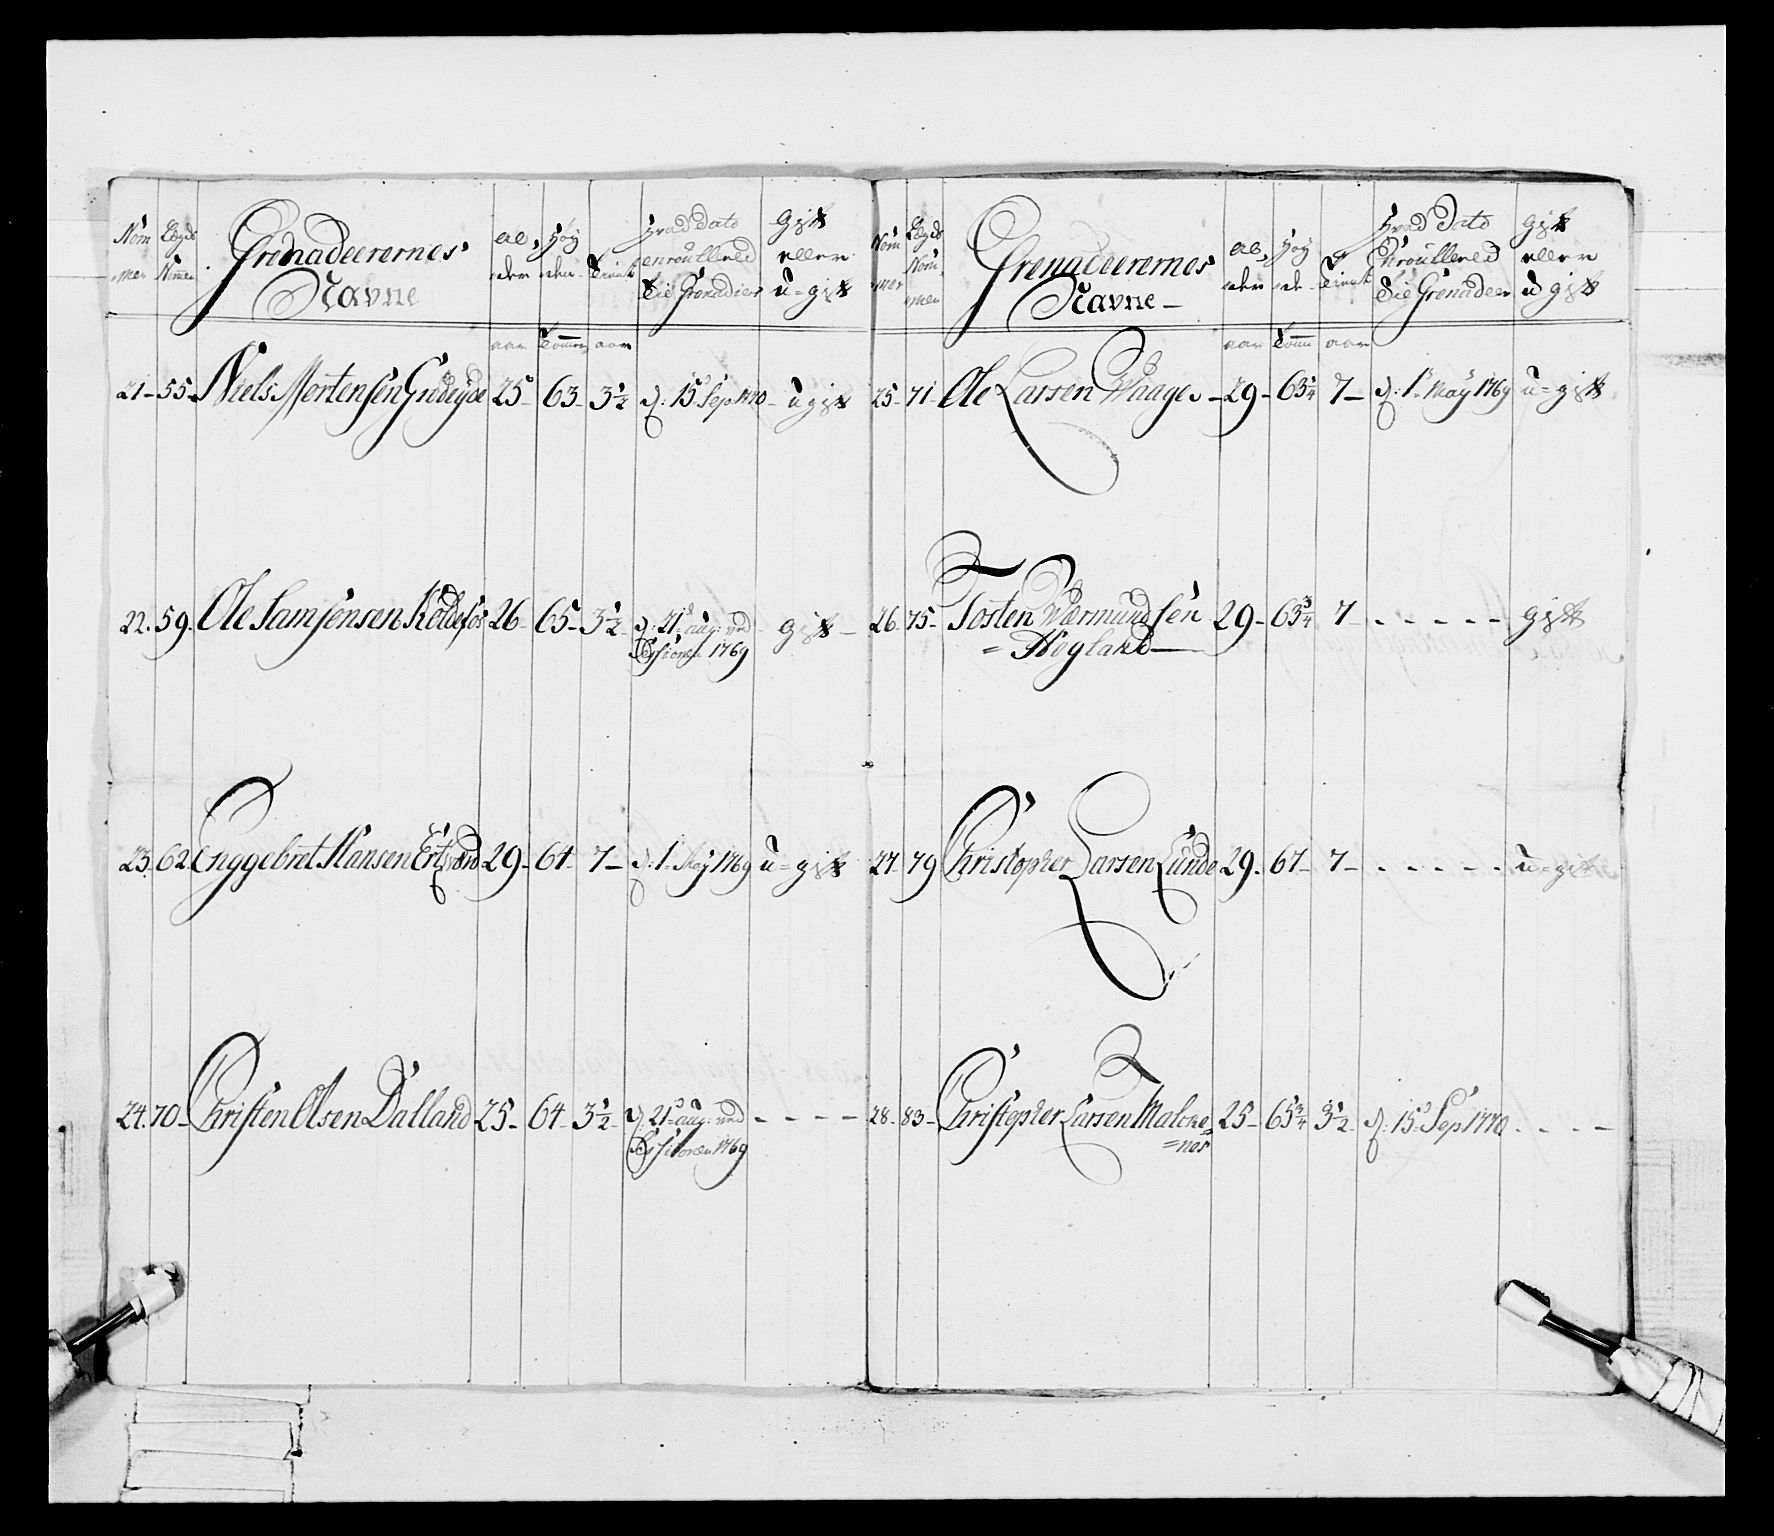 Nom
mer
Lægds
Nūmer
Grenadeerernes
Navne
al,
der
Høÿ
den
Tient
Hvad Dato
enroulleret
Til Grenadier
Gift
eller
u=gift
aar Tomer aar
21- 55- Niels Mortensen Grødeÿde 25 63- 3½ d: 15d Sep 1770- ugift
22. 59. Ole Samsonsen Koldefos 26- 65- 3½- d: 21d aug: ved
Sessionen 1769
gift-
23. 62 Enggebret Hansen Ertzværd 29- 64- 7- d: 1t Maÿ 1769 u=gift
24. 70- Christen Olsen Dalland 25- 64- 3½- d: 21d aug: ved
Sessionen 1769
- - - -
Nom
mer
Lægds
Nom,
mer
Grenadeerernes
Navne-
al,
der
Høÿ
de-
Tient
Hvad Dato
Enroulleret
Til Grenadeer
gift
eller
u gift
aar Tomm aar
25- 71- Ole Larsen Waage- 29- 63¼ 7- d: 1t Maÿ 1769 u=gift
26- 75- Tosten Wermundsen 29- 63¾ 7- - - - - - gift
=Høgland-
27- 79 Christopher Larsen Lunde 29. 67- 7- - - - - - u=gift
28- 83- Christopher Larsen Malone= 25- 65¾ 3½- d: 15d Sep 1770 - - - -
=nes